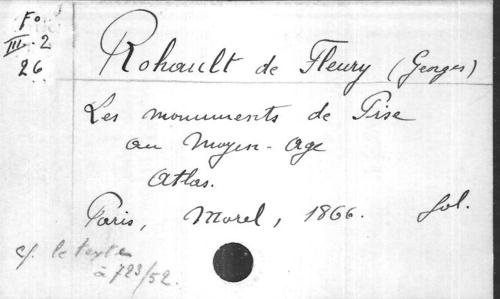 Fo
III. 2
26
Rohault de Fleury (Georges)
Les monuments de Pise
au Moyen-Age
Atlas.
Paris, Morel, 1866. fol.
cf. le texte
à 723/52.